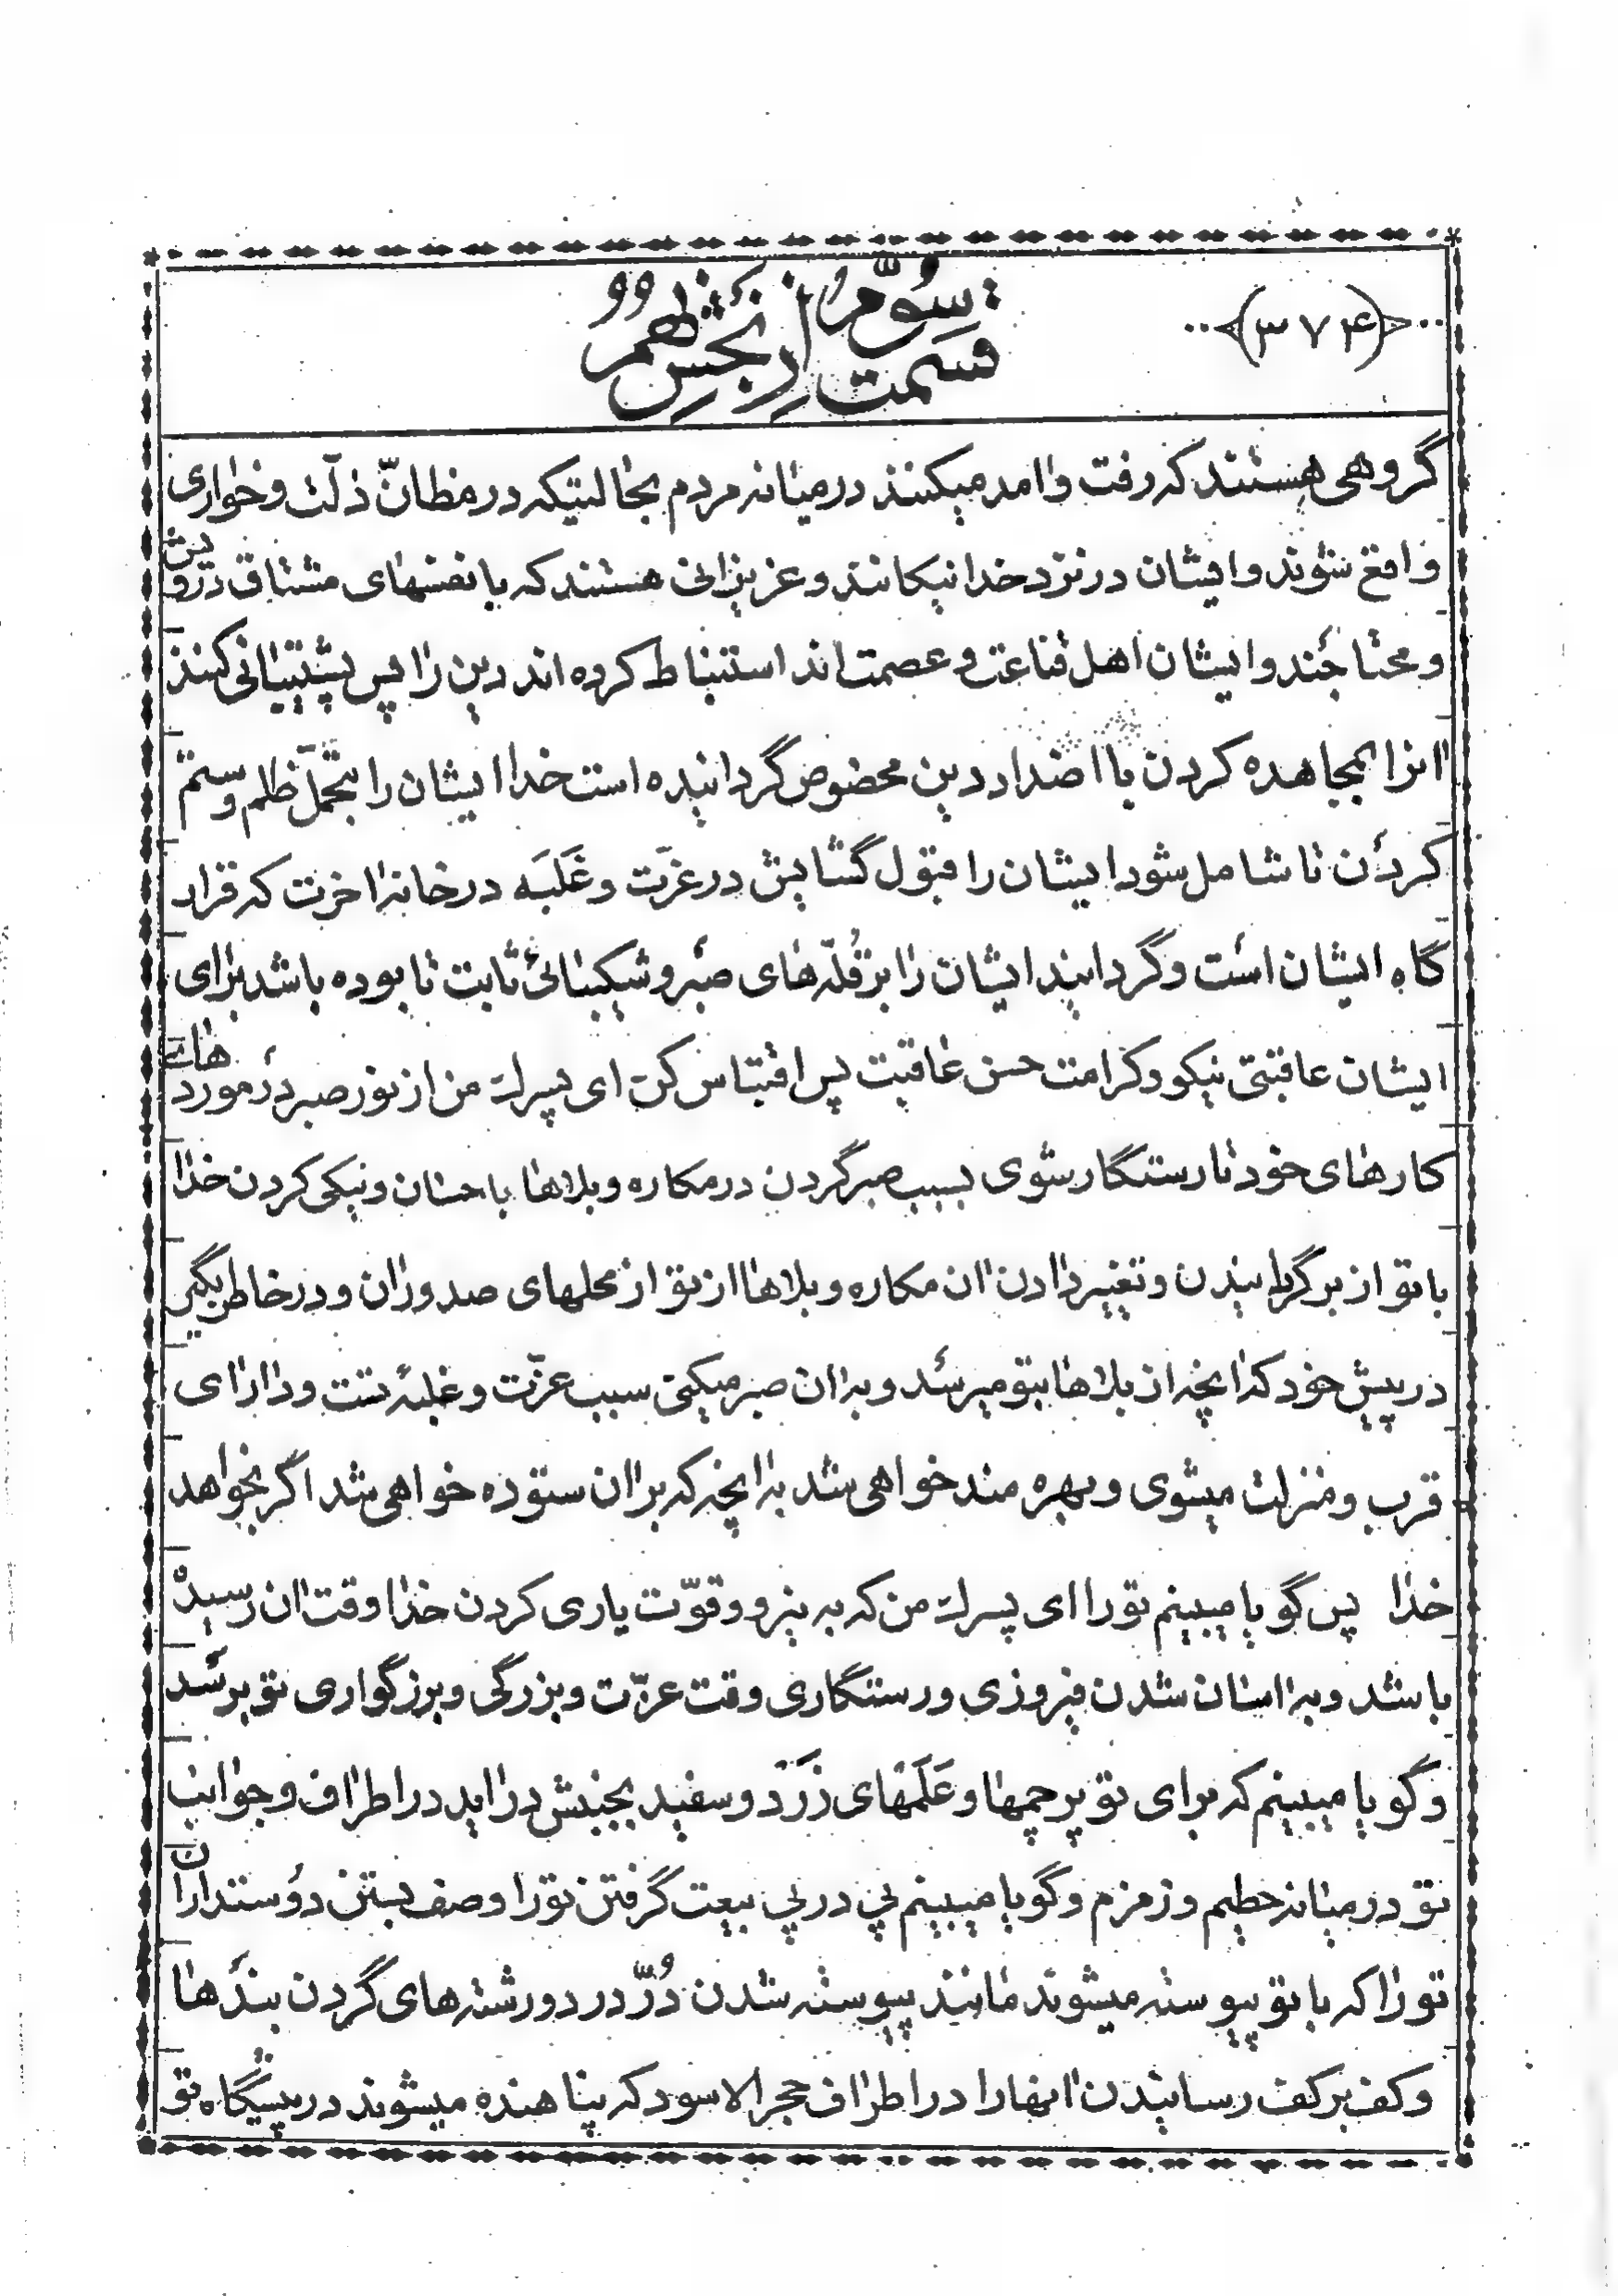 ﴿۳۷۴﴾
قسمت سوّم از بخش نهم
گروهی هستند که رفت و امد میکنند در میانه مردم بحالتیکه در مظانّ ذلّت و خواری
واقع شوند و ایشان در نزد خدا نیکانند و عزیزانی هستند که با نفسهای مشتاق درویش
و محتاجند و ایشان اهل قناعت و عصمت اند استنباط کرده اند دین را پس پشتیبانی کنند
انرا بمجاهده کردن با اضداد دین مخصوص گردانیده است خدا ایشان را بتحمّل ظلم و ستم
کردن تا شامل شود ایشان را قبول گشایش در عزّت و غَلَبَه در خانه اخرت که قرار
گاه ایشان است و گردانید ایشان را بر قُلّه های صبر و شکیبائی ثابت تا بوده باشد برای
ایشان عاقبتی نیکو و کرامت حسن عاقبت پس اقتباس کن ای پسرک من از نور صبر در مورد هاے
کارهای خود تا رستگار شوی بسبب صبر کردن در مکاره و بلاها باحسان و نیکی کردن خدا
با تو از برگردانیدن و تغییر دادن ان مکاره و بلاها از تو از محلهای صدوران و در خاطر بگیر
در پیش خود که انچه از بلاها بتو میرسد و به ان صبر میکنی سبب عزّت و غلبهٔ تست و دارای
قرب و منزلت میشوی و بهره مند خواهی شد به انچه که بر ان ستوده خواهی شد اگر بخواهد
خدا پس گویا میبینم تو را ای پسرک من که به نیرو و قوّت یاری کردن خدا وقت ان رسیده
باشد و به اسان شدن فیروزی و رستگاری وقت عزّت و بزرگی و برزگواری تو برسد
و گویا میبینم که برای تو پرچمها و عَلَمهای زَرَد و سفید بجنبش در اید در اطراف و جوانب
تو در میانه حطیم و زمزم و گویا میبینم پی در پی بیعت گرفتن تو را و صف بستن دوستداران
تو را که با تو پیوسته میشوند مانند پیوسته شدن دُرّ در دو رشته های گردن بندها
و کف بر کف رسانیدن انها را در اطراف حجر الاسود که پناهنده میشوند در پیشگاه تو